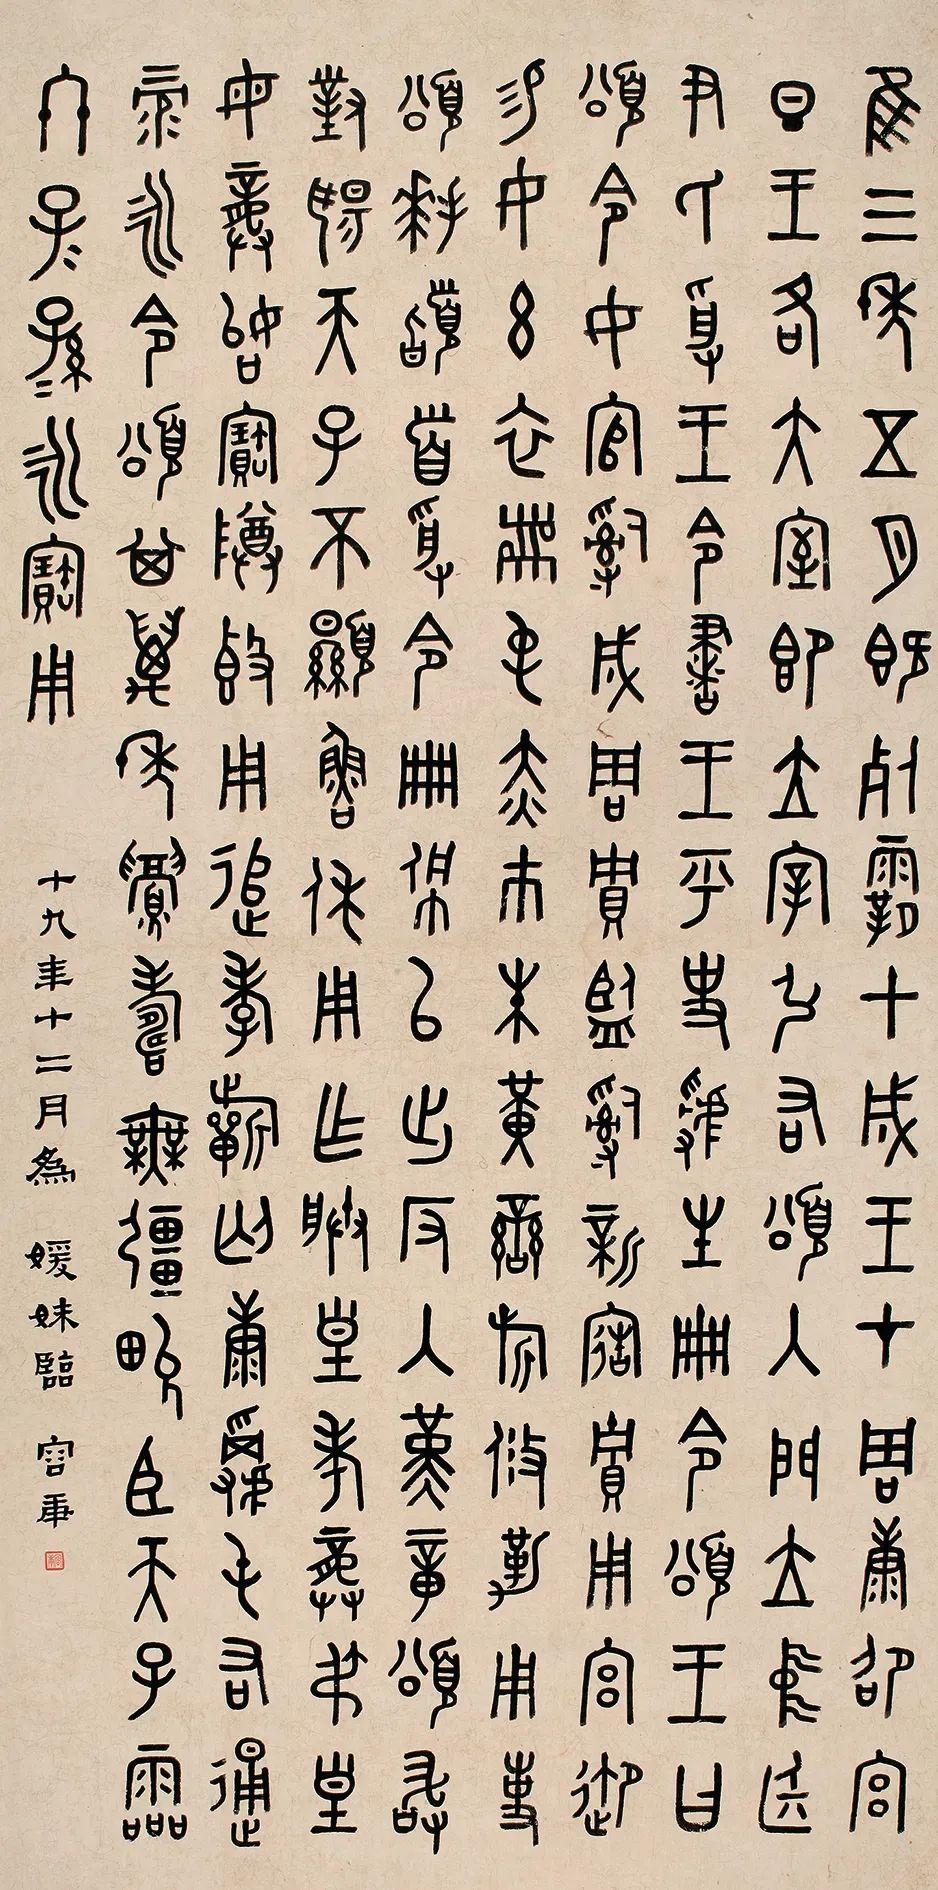 隹三年五月既死霸甲戌王才周康卲宮
旦王各大室即立宰弘右頌入門立中廷
尹氏受王令書王乎史虢生冊令頌王曰
頌令女官𤔲成周貯監𤔲新造貯用宮御
易女玄衣黹屯赤巿朱黃䜌旂攸勒用事
頌拜𩒨首受令冊佩以出反入堇章頌敢
對揚天子不顯魯休用乍朕皇考龏弔皇
母龏始寶尊𣪘用追孝祈匃康𠭯屯右通
彔永令頌其萬年眉壽無疆畯臣天子霝
冬子〻孫〻永寶用
十九年十二月為 媛妹臨 容庚